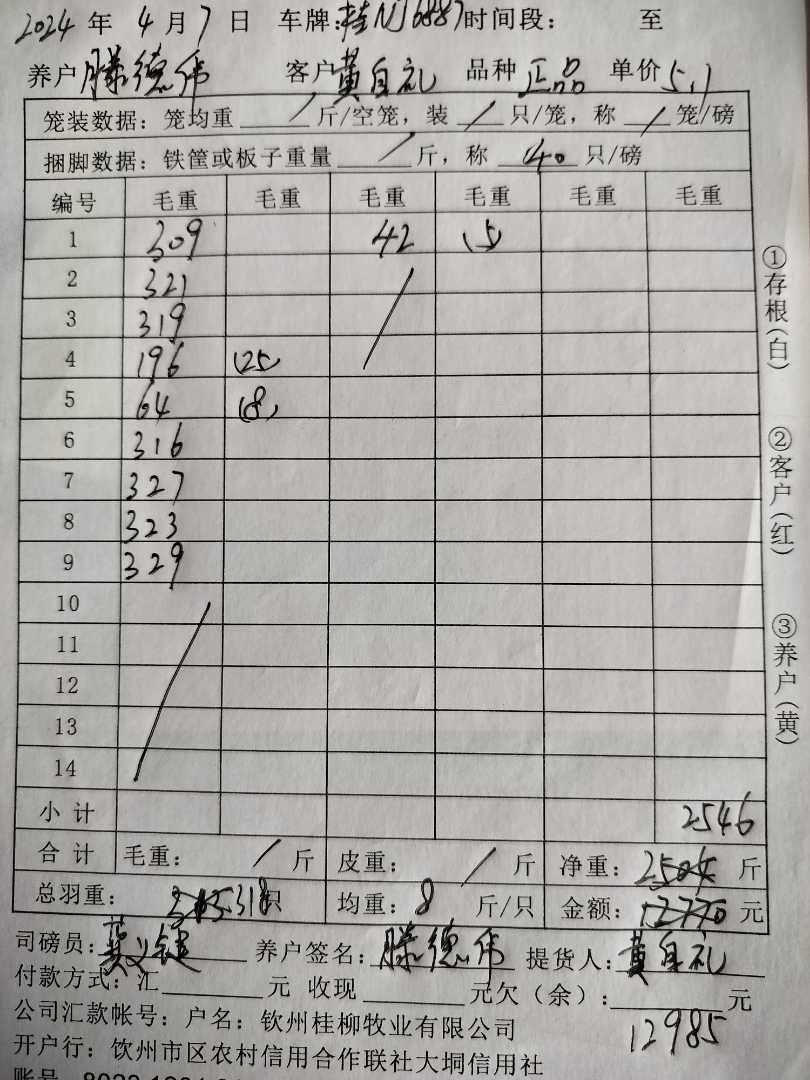 2024 年 4 月 7 日 车牌:桂NJ6887 时间段: 至
养户 滕德伟 客户 黄自礼 品种 正品 单价 5.1
笼装数据：笼均重 / 斤/空笼，装 / 只/笼，称 / 笼/磅
捆脚数据：铁筐或板子重量 / 斤，称 40 只/磅
编号 毛重 毛重 毛重 毛重 毛重 毛重
1 309 42 (5)
2 321 /
3 319
4 196 (25)
5 64 (8)
6 316
7 327
8 323
9 329
10 /
11
12
13
14
小 计 2546
合 计 毛重： / 斤 皮重： / 斤 净重：2504 斤
总羽重： 318只 均重：8 斤/只 金额：12770 元
司磅员： 养户签名：滕德伟 提货人：黄自礼
付款方式：汇 元 收现 元欠（余）： 元
12985
公司汇款帐号：户名：钦州桂柳牧业有限公司
开户行：钦州市区农村信用合作联社大垌信用社
①存根(白)
②客户(红)
③养户(黄)